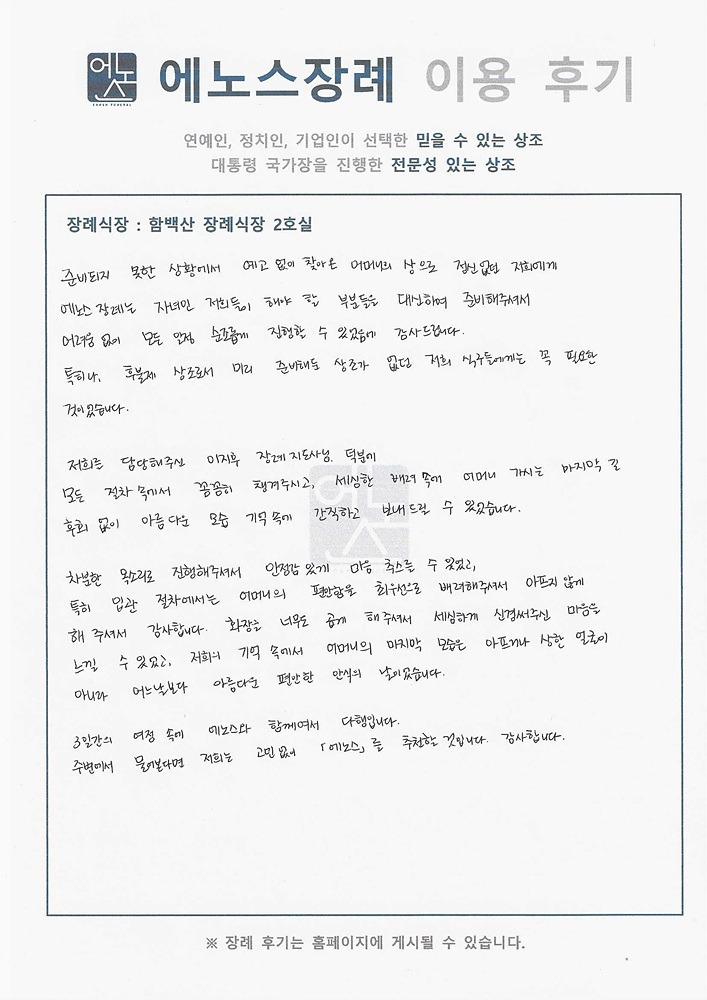 에노스
ENOSE FUNERAL
에노스장례 이용 후기
연예인, 정치인, 기업인이 선택한 믿을 수 있는 상조
대통령 국가장을 진행한 전문성 있는 상조
장례식장 : 함백산 장례식장 2호실
준비되지 못한 상황에서 예고 없이 찾아온 어머니의 상으로 정신없던 저희에게
에노스 장례는 자녀인 저희들이 해야 할 부분들을 대신하여 준비해주셔서
어려움 없이 모든 일정 순조롭게 진행할 수 있었음에 감사드립니다.
특히나, 후불제 상조로서 미리 준비해둔 상조가 없던 저희 식구들에게는 꼭 필요한
것이었습니다.
저희를 담당해주신 이지후 장례지도사님 덕분에
모든 절차 속에서 꼼꼼히 챙겨주시고, 세심한 배려 속에 어머니 가시는 마지막 길
후회 없이 아름다운 모습 기억 속에 간직하고 보내드릴 수 있었습니다.
차분한 목소리로 진행해주셔서 안정감 있게 마음 추스를 수 있었고,
특히 입관 절차에서는 어머니의 편안함을 최우선으로 배려해주셔서 아프지 않게
해 주셔서 감사합니다. 화장을 너무도 곱게 해주셔서 세심하게 신경써주신 마음을
느낄 수 있었고, 저희의 기억 속에서 어머니의 마지막 모습은 아프거나 상한 얼굴이
아니라 어느날보다 아름다운 편안한 안식의 날이었습니다.
3일간의 여정 속에 에노스와 함께여서 다행입니다.
주변에서 물어본다면 저희는 고민없이 「에노스」를 추천할 것입니다. 감사합니다.
※ 장례 후기는 홈페이지에 게시될 수 있습니다.